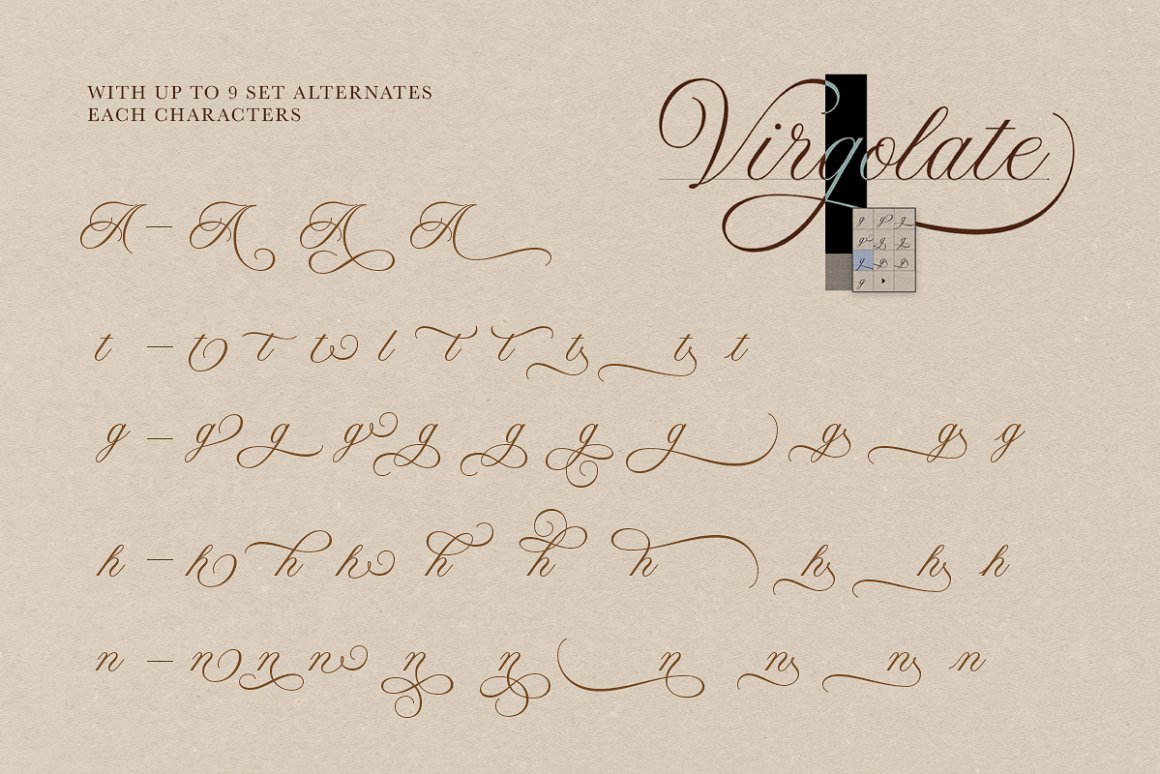 WITH UP TO 9 SET ALTERNATES
EACH CHARACTERS
Virgolate
A — A A A
t — t t t t t t t t t
g — g g g g g g g g g g
h — h h h h h h h h h
n — n n n n n n n n n